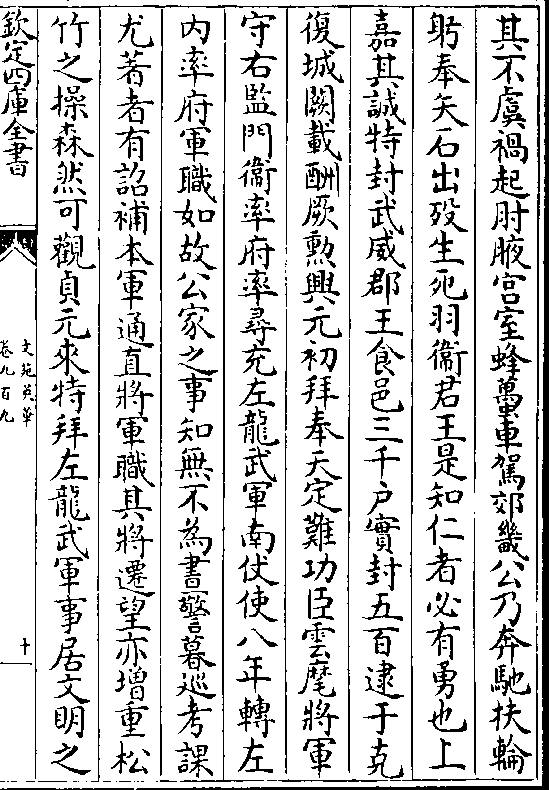 其不虞禍起肘腋宫室蜂蠆車駕郊畿公乃奔馳扶輪
躬奉矢石出歿生死羽衞君王是知仁者必有勇也上
嘉其誠特封武威郡王食邑三千户實封五百逮于克
復城闕載酬厥勲興元初拜奉天定難功臣雲麾將軍
守右監門衞率府率尋充左龍武軍南仗使八年轉左
内率府軍職如故公家之事知無不為晝警暮巡考課
尤著者有詔補本軍通直將軍職其將遷望亦增重松
竹之操森然可觀貞元來特拜左龍武軍事居文明之
欽定四庫全書
文苑英華
卷九百九
十